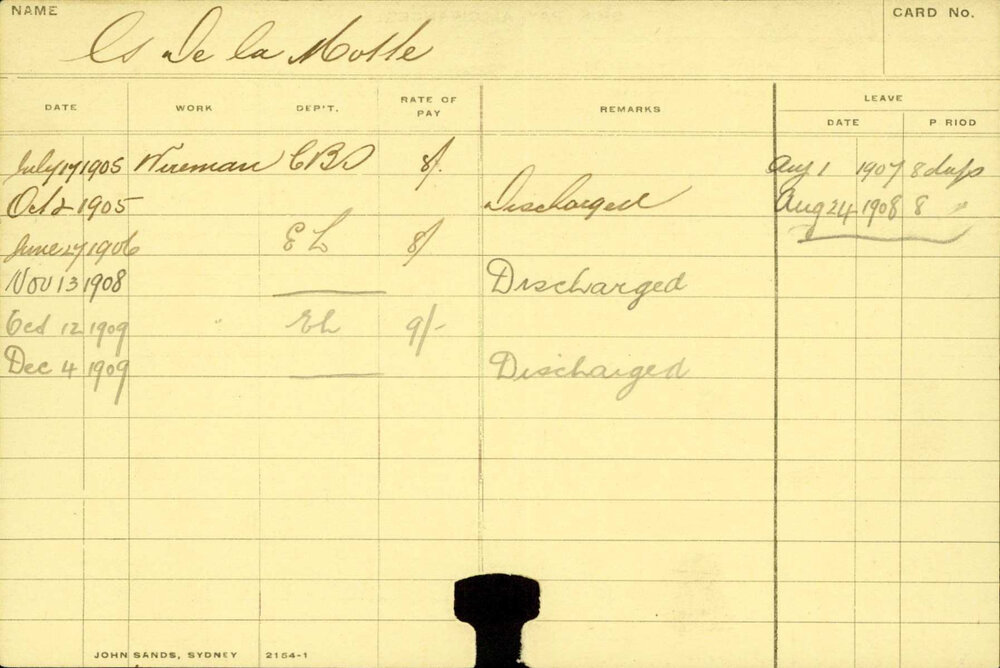 NAME
CARD No.
De la Motte
DATE WORK DEP'T. RATE OF PAY REMARKS LEAVE
DATE P RIOD
July 17 1905 Wireman 8/. Aug 1 1907 8 days
Oct 2 1905 Discharged Aug 24 1908 8 "
June 27 1906 E L 8/
Nov 13 1908 Discharged
Oct 12 1909 EL 9/-
Dec 4 1909 Discharged
JOHN SANDS, SYDNEY 2154-1